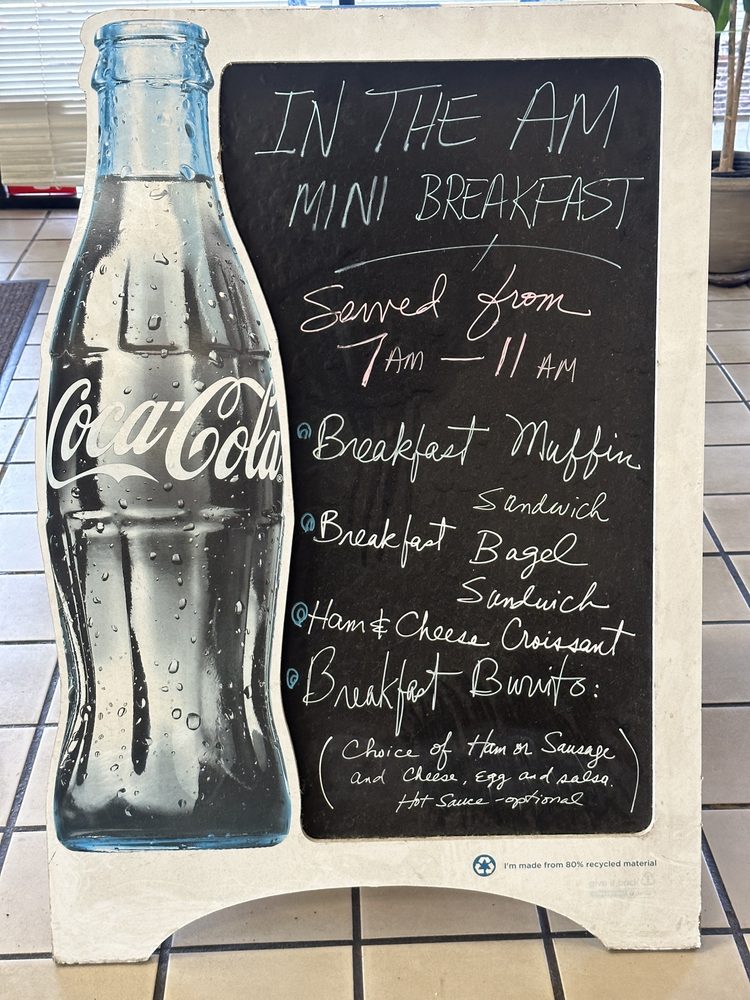 IN THE AM
MINI BREAKFAST
Served from
7 AM — 11 AM
Breakfast Muffin
Sandwich
Breakfast Bagel
Sandwich
Ham & Cheese Croissant
Breakfast Burrito:
(Choice of Ham or Sausage
and Cheese, Egg and salsa.
Hot Sauce - optional)
Coca-Cola
I'm made from 80% recycled material
give it back